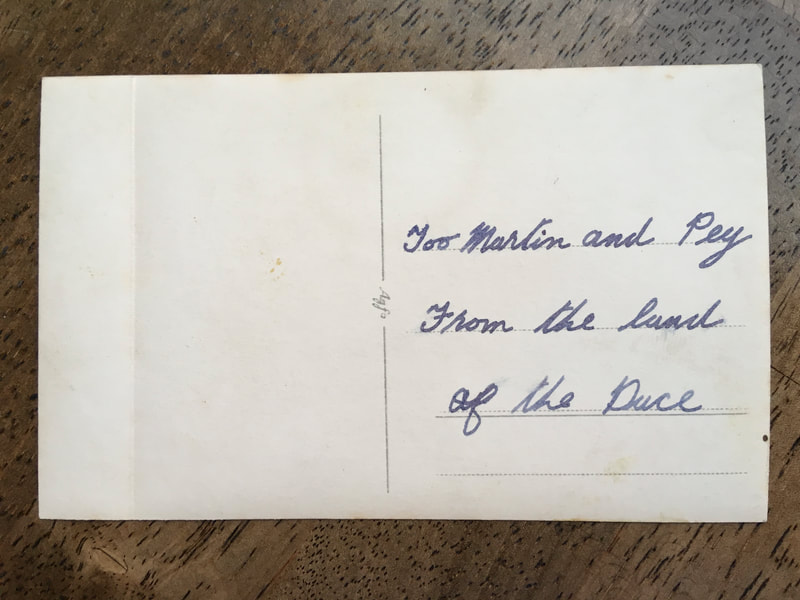 Too Martin and Pey
From the land
of the Duce